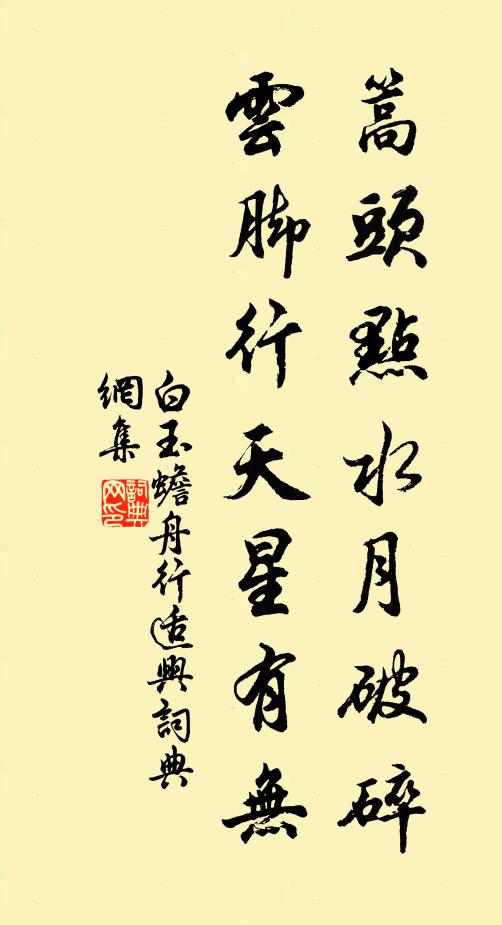 蒿頭點水月破碎
雲脚行天星有無
白玉蟾舟行適興詞典
網集
詞典網印